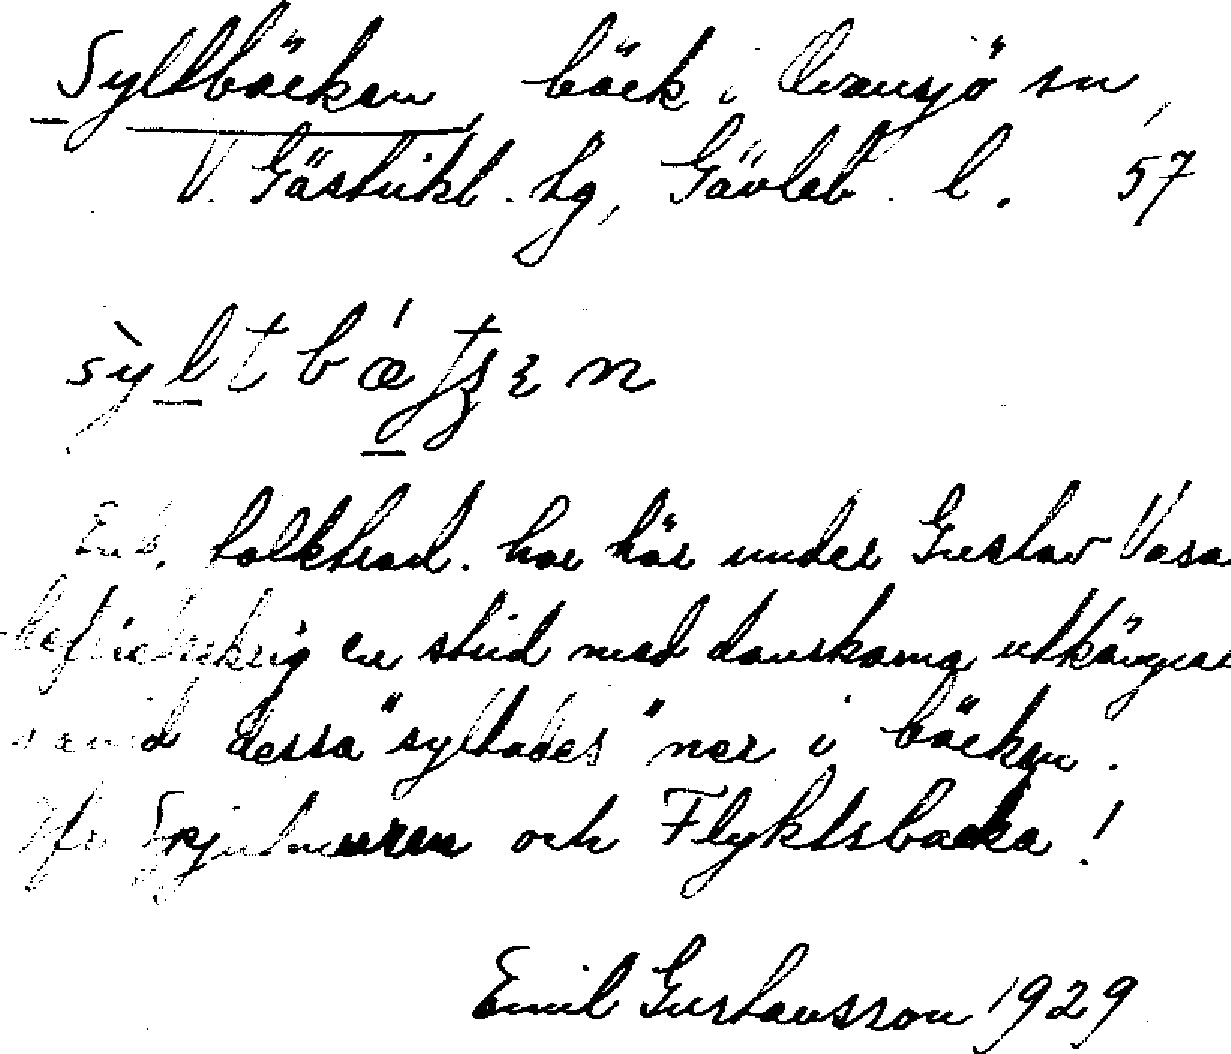 Syltbäcken, bäck i Ovansjö sn,
V. Gästrikl. tg, Gävleb. l. 57
sỳltbǽtʂɛn
Enl. folktrad. har här under Gustav Vasa
befrielsekrig en strid med danskarna utkämpats
samt dessa "syltades" ner i bäcken.
Jfr och Flyktsbacka!
Emil Gustavsson 1929